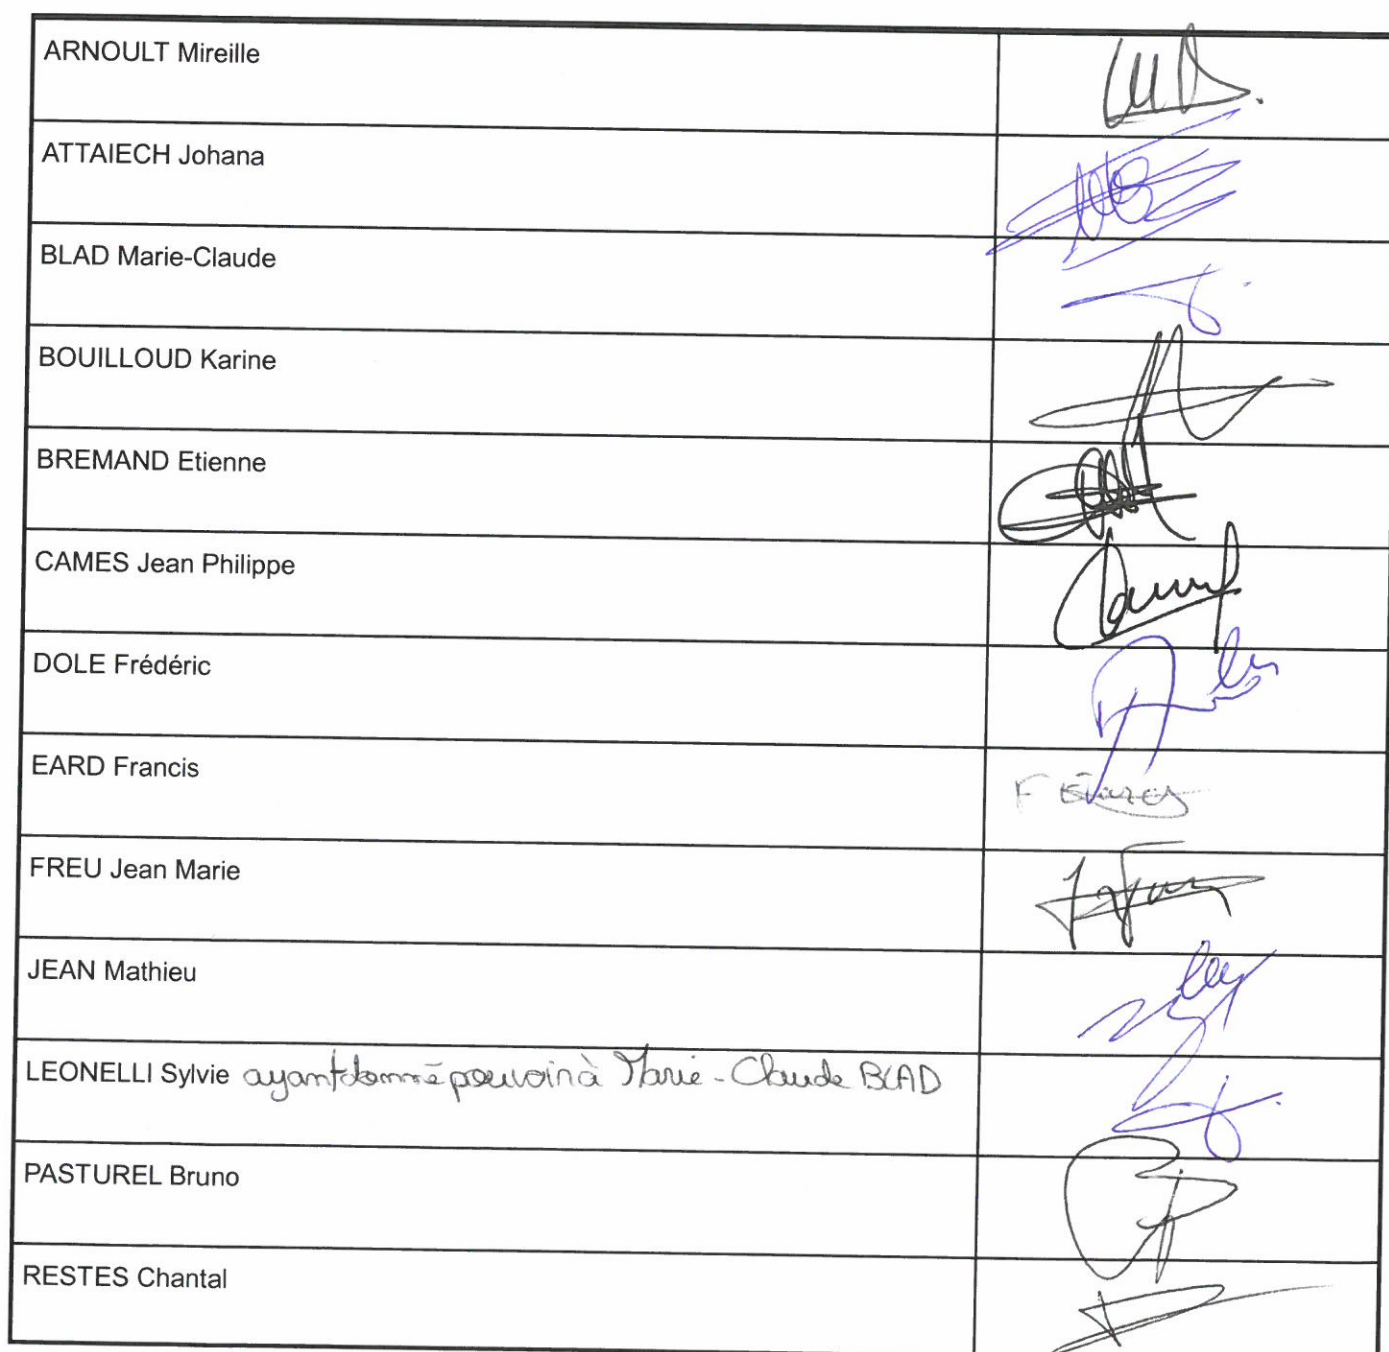 ARNOULT Mireille
ATTAIECH Johana
BLAD Marie-Claude
BOUILLOUD Karine
BREMAND Etienne
CAMES Jean Philippe
DOLE Frédéric
EARD Francis
FREU Jean Marie
JEAN Mathieu
LEONELLI Sylvie ayant donné pouvoir à Marie-Claude BLAD
PASTUREL Bruno
RESTES Chantal